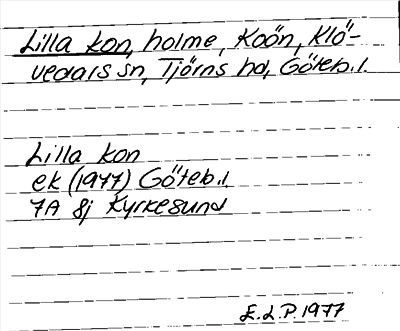 Lilla kon, holme, Koön, Klö-
vedals sn, Tjörns hd, Göteb.l.
Lilla kon
ek (1977) Göteb.l.
7A 8j Kyrkesund
E.L.P. 1977